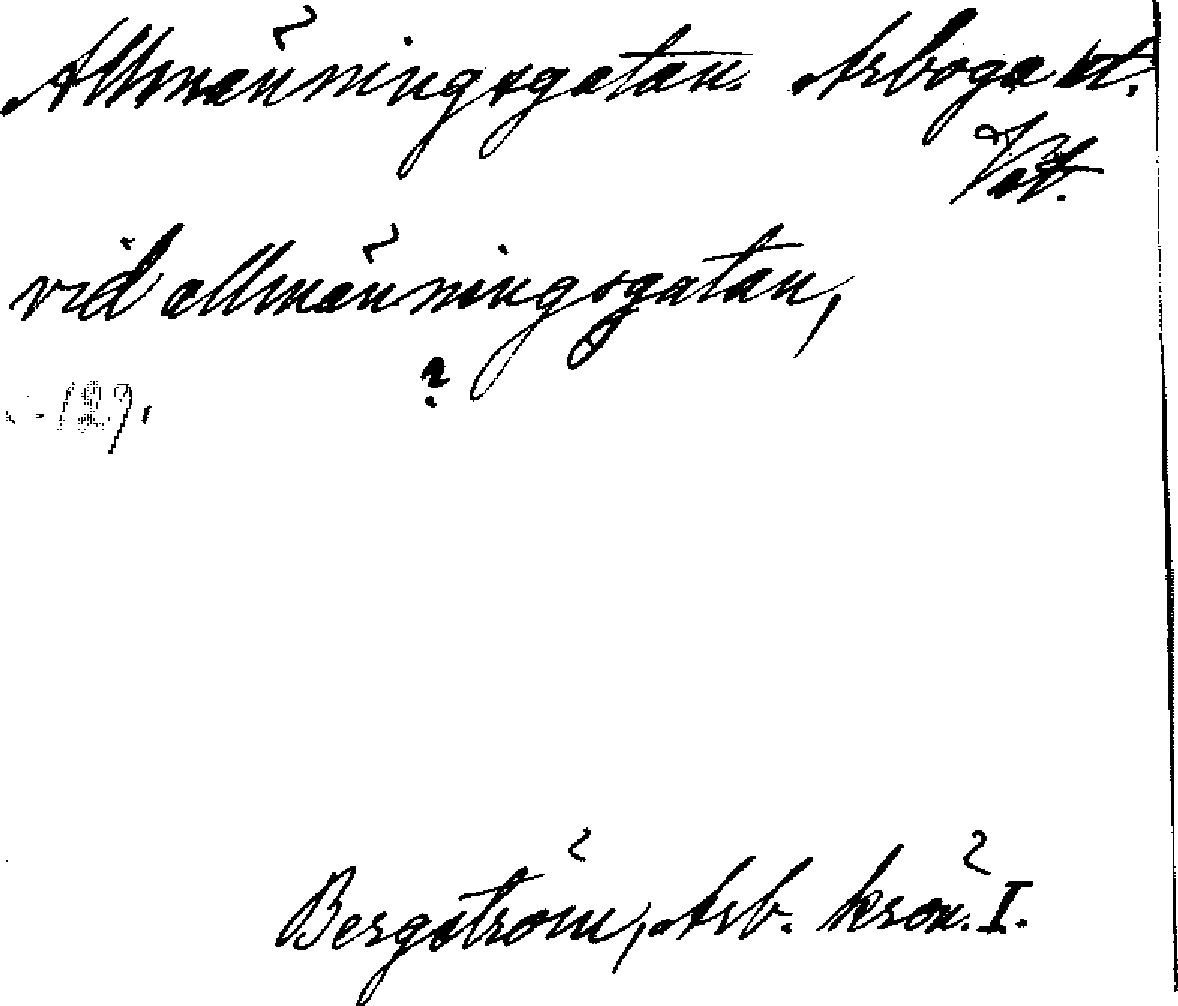 Allmänningsgatan. Arboga st.
Vstl.
vid allmänningsgatan,
?
s. 129.
Bergström, Arb. krön. I.